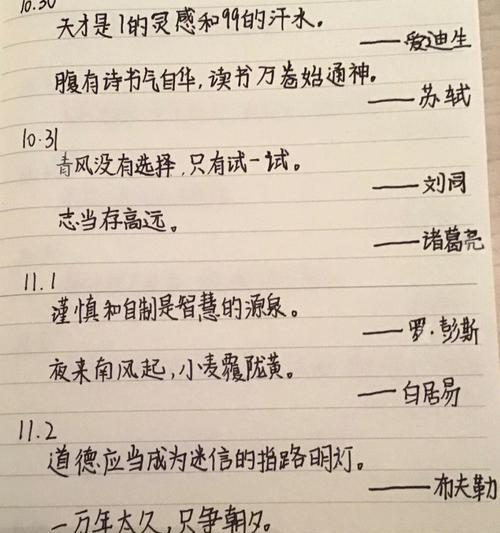 10.30
天才是1的灵感和99的汗水。
——爱迪生
腹有诗书气自华,读书万卷始通神。
——苏轼
10.31
青风没有选择,只有试一试。
——刘同
志当存高远。
——诸葛亮
11.1
谨慎和自制是智慧的源泉。
——罗·彭斯
夜来南风起,小麦覆陇黄。
——白居易
11.2
道德应当成为迷信的指路明灯。
——布夫勒
一万年太久,只争朝夕。